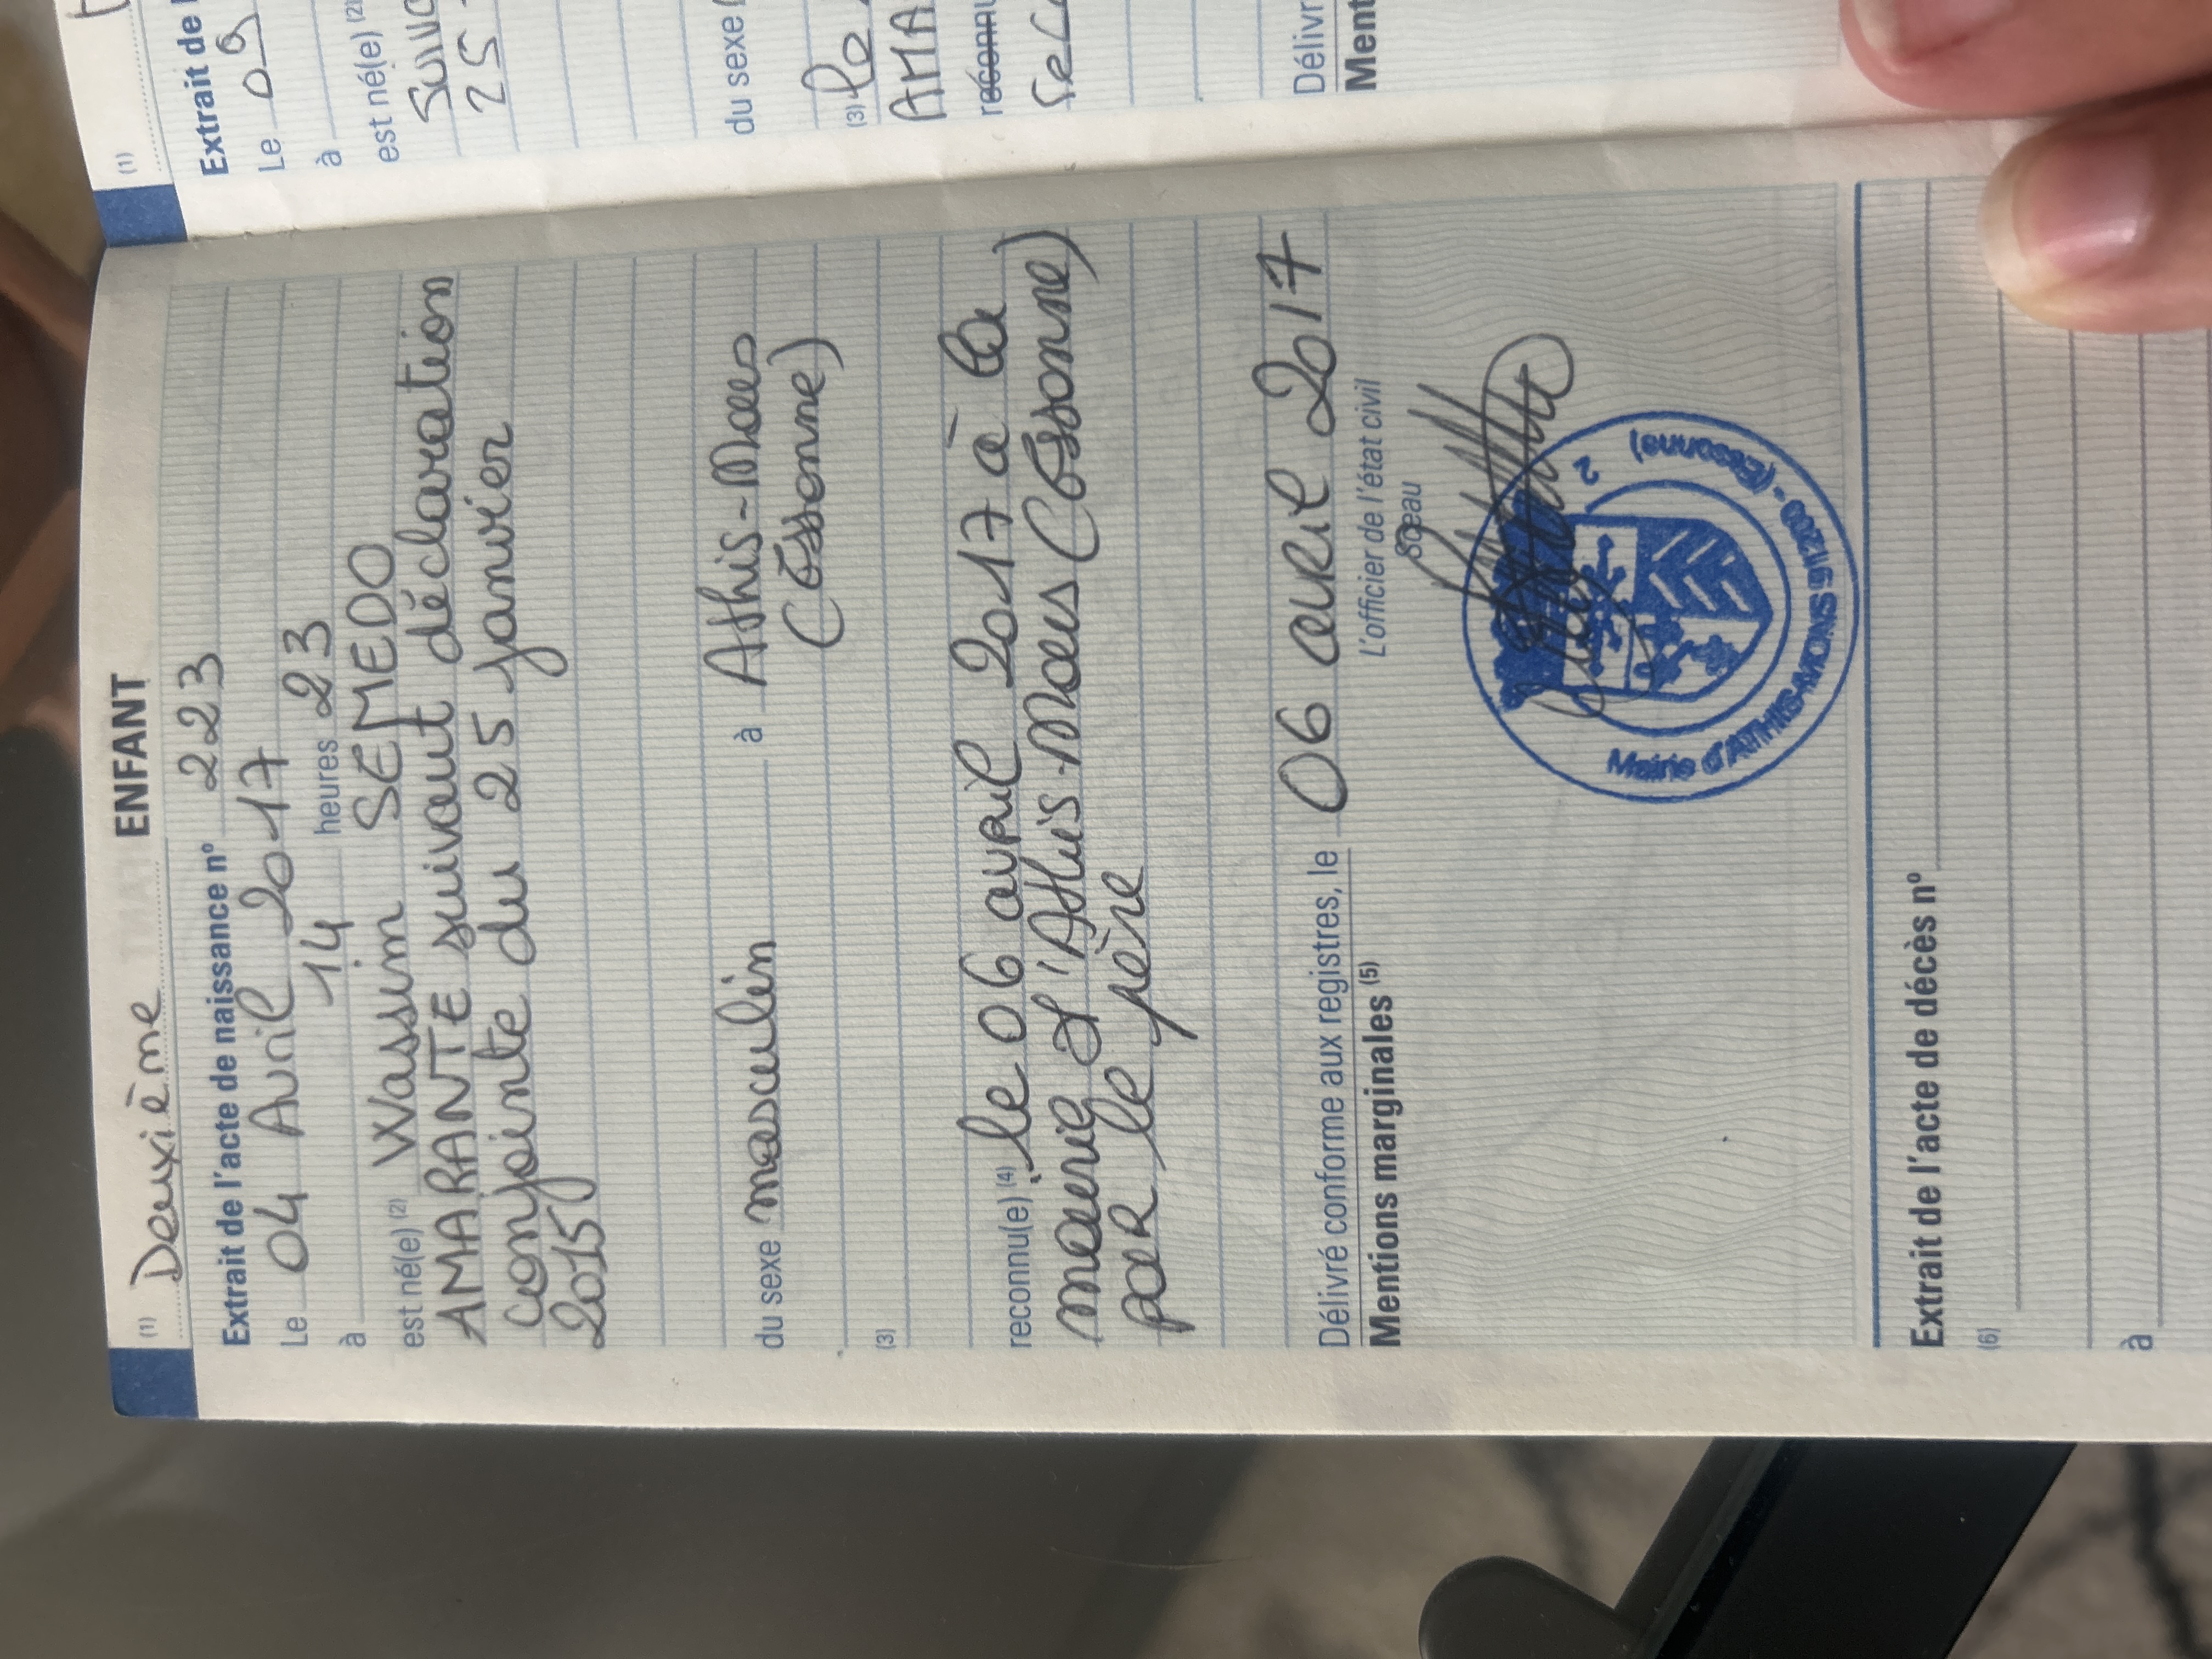 (1) Deuxième ENFANT
Extrait de l'acte de naissance nº 223
Le 04 Avril 2017
à 14 heures 23
est né(e) (2) Wassim SEMEDO
AMARANTE suivant déclaration
conjointe du 25 janvier
2015
du sexe masculin à Athis-Mons
(Essonne)
(3)
reconnu(e) (4) le 06 avril 2017 à la
mairie d'Athis-Mons (Essonne)
par le père
Délivré conforme aux registres, le 06 avril 2017
Mentions marginales (5)
L'officier de l'état civil
Sceau
Mairie d'ATHIS-MONS 91200 - (Essonne)
2
Extrait de l'acte de décès nº
(6)
à
(1)
Extrait de l
Le 09
à
est né(e) (2)
25
du sexe
(3) le
AMA
Délivr
Ment